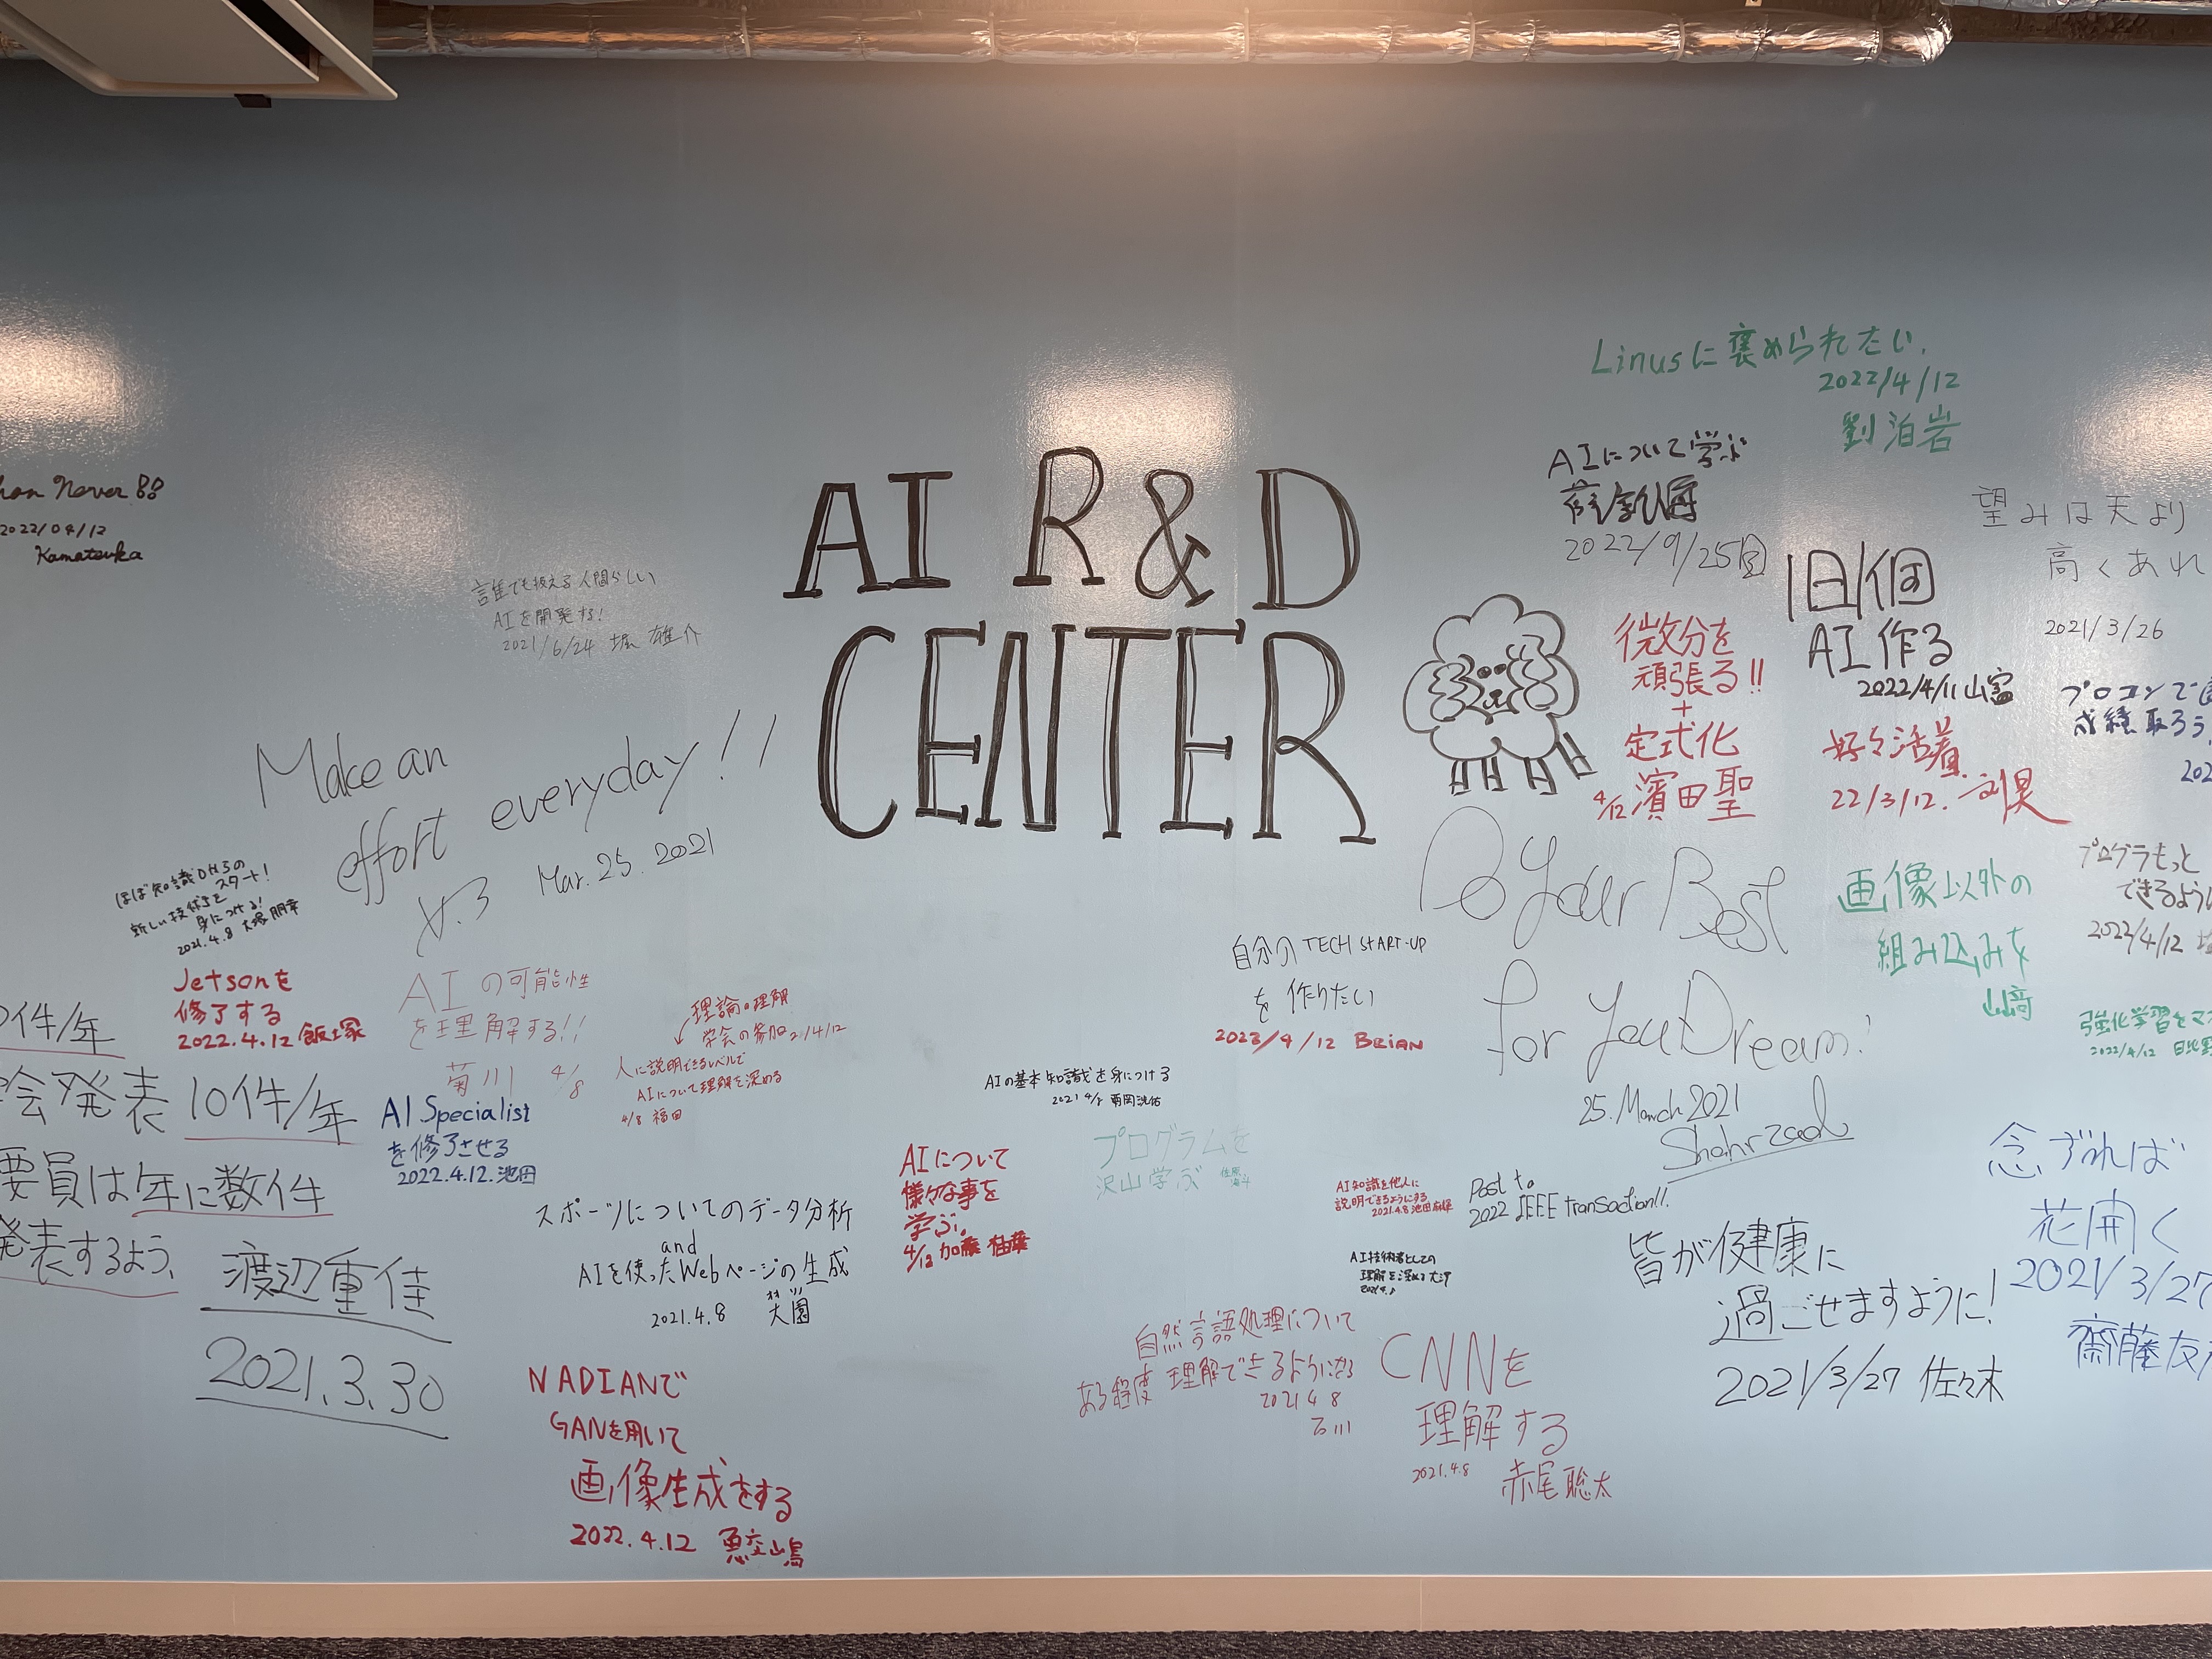 AI R & D
CENTER
Never !!
2022/04/12
Kamatsuka
誰でも扱える人間らしい
AIを開発する!
2021/6/24 堀 雄介
Make an
effort everyday!!
Y.3 Mar. 25. 2021
ほぼ知識0からの
スタート!
新しい技術を
身につける!
2021.4.8 大塚 朋幸
Jetsonを
修了する
2022.4.12 飯塚
件/年
会発表 10件/年
要員は年に数件
発表するよう、
渡辺重佳
2021.3.30
AIの可能性
を理解する!!
菊川 4/8
理論の理解
学会の参加 21/4/12
人に説明できるレベルで
AIについて理解を深める
4/8 福田
AI Specialist
を修了させる
2022.4.12. 池田
スポーツについてのデータ分析
and
AIを使ったWebページの生成
2021.4.8 大園
NADIANで
GANを用いて
画像生成をする
2022.4.12 鮫島
AIについて
様々な事を
学ぶ。
4/12 加藤
自分の TECH START-UP
を 作りたい
2023/4/12 BRIAN
AIの基本知識を身につける
2021 4/8
プログラムを
沢山学ぶ
自然言語処理について
ある程度 理解できるようになる
2021 4 8
石川
AI知識を他人に
説明できるようにする
2021.4.8 池田
AI技術者としての
理解を深める
Post to
2022 IEEE transaction!!
CNNを
理解する
2021.4.8 赤尾聡太
Linusに褒められたい.
2022/4/12
劉泊岩
AIについて学ぶ
2022/9/25
微分を
頑張る!!
+
定式化
4/12 濱田聖
1日1個
AI作る
2022/4/11 山富
22/3/12.
Do Your Best
for You Dream!
25. March 2021
Shahrzad
画像以外の
組み込みを
山﨑
皆が健康に
過ごせますように!
2021/3/27 佐々木
望みは天より
高くあれ
2021/3/26
プロコンで
成績取ろう
202
プログラもっと
できるように
2022/4/12
強化学習をマス
2022/4/12 日比野
念ずれば
花開く
2021/3/27
齋藤友